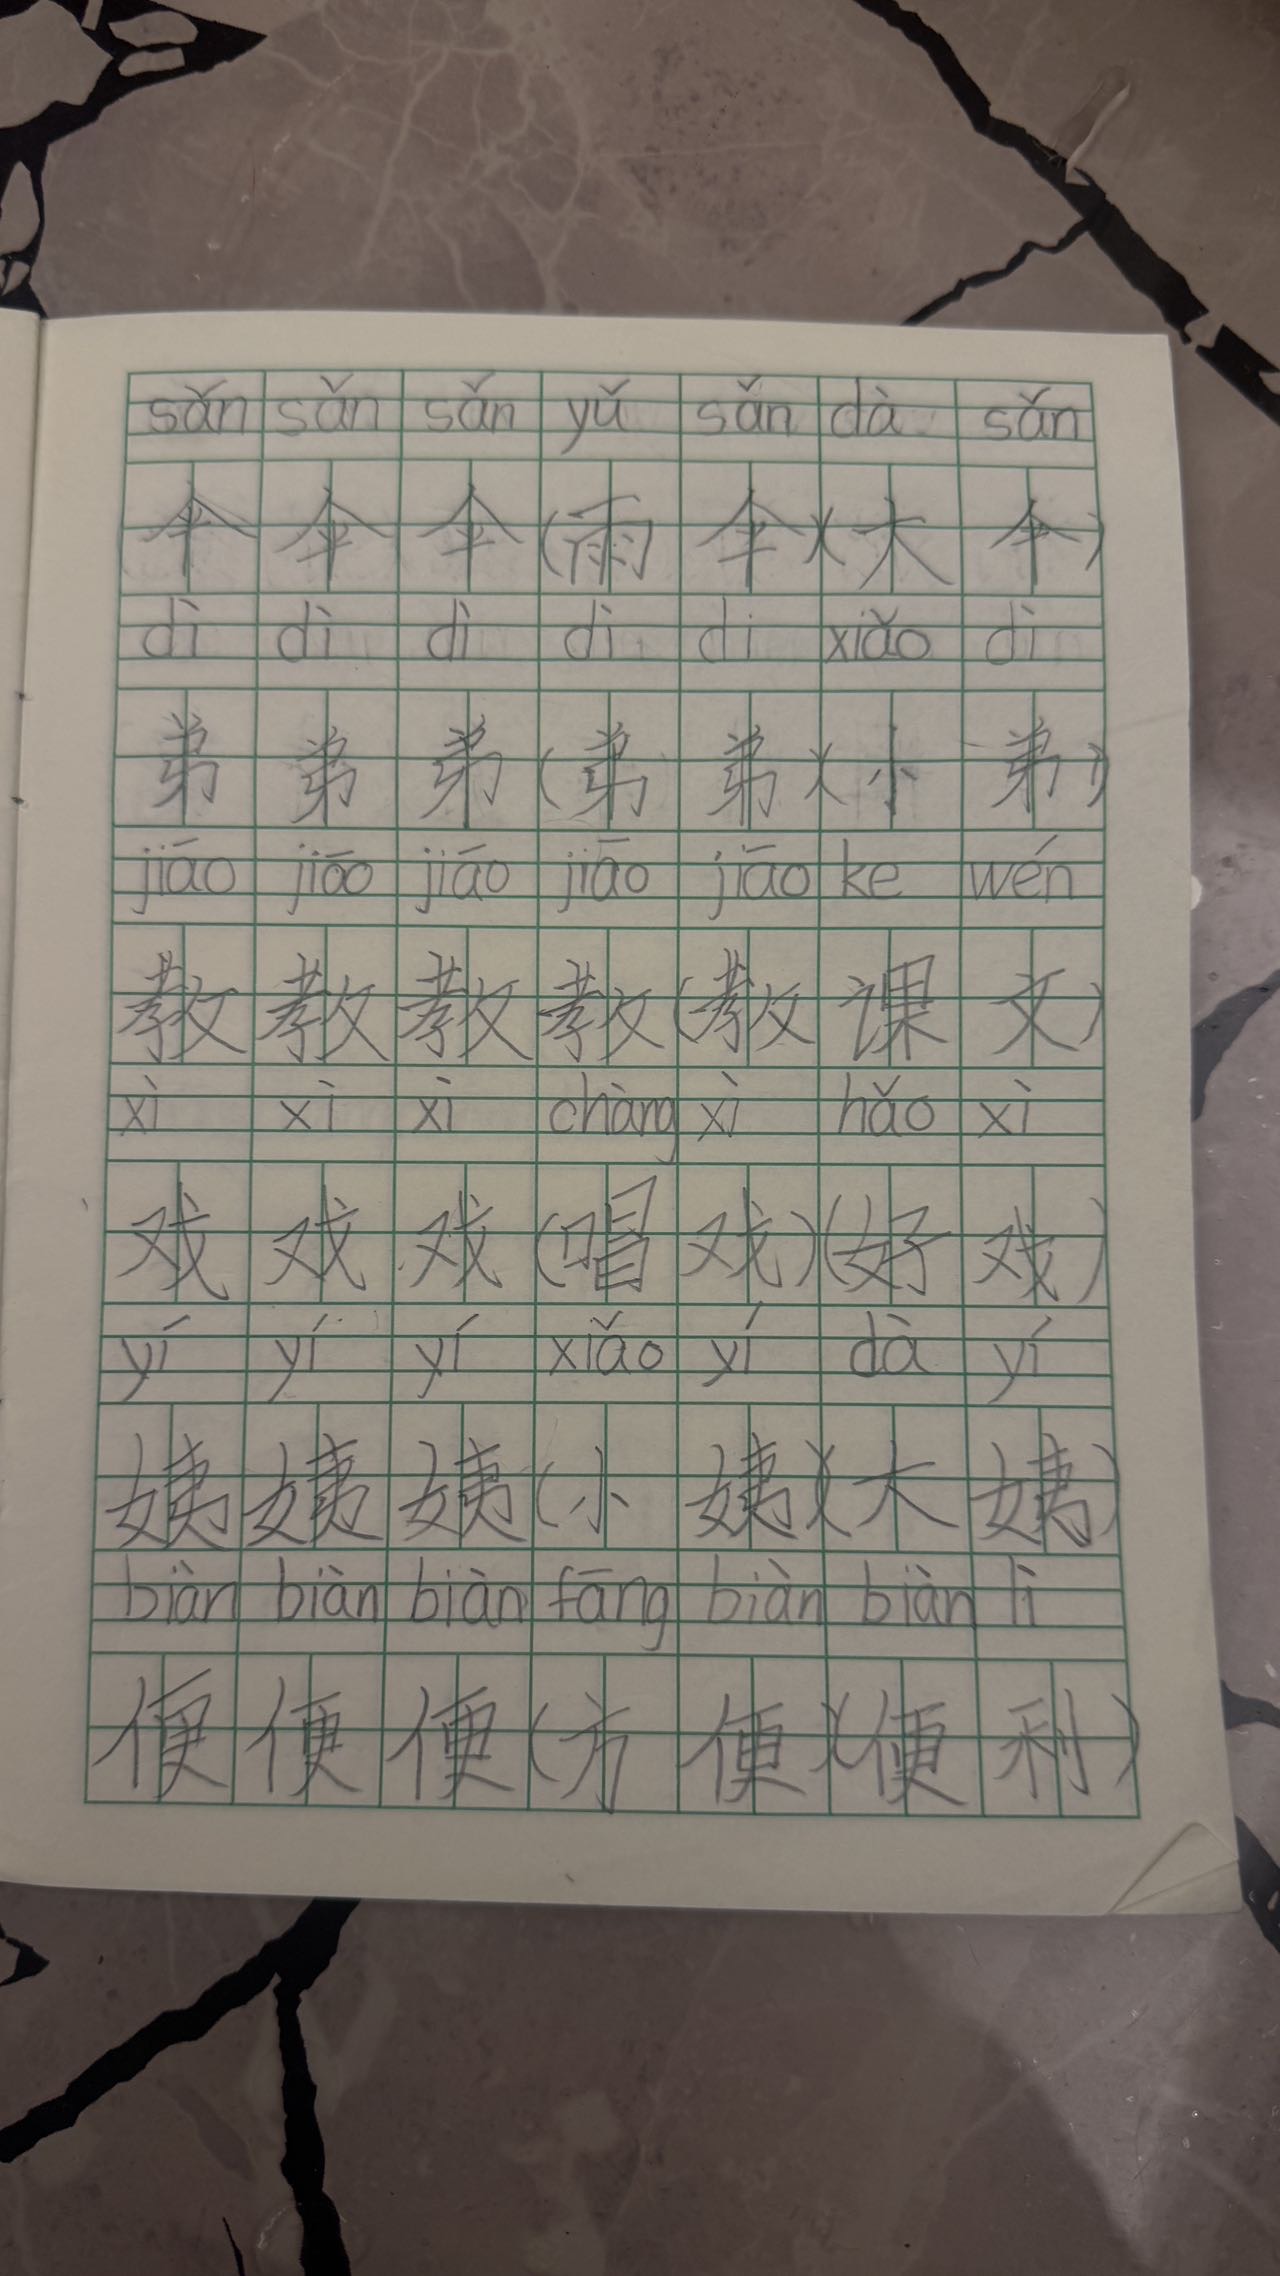 sǎn sǎn sǎn yǔ sǎn dà sǎn
伞 伞 伞 (雨 伞)(大 伞)
dì dì dì dì di xiǎo dì
弟 弟 弟 (弟 弟)(小 弟)
jiāo jiāo jiāo jiāo jiāo ke wén
教 教 教 教 (教 课 文)
xì xì xì chàng xì hǎo xì
戏 戏 戏 (唱 戏)(好 戏)
yí yí yí xiǎo yí dà yí
姨 姨 姨 (小 姨)(大 姨)
biàn biàn biàn fāng biàn biàn lì
便 便 便 (方 便)(便 利)